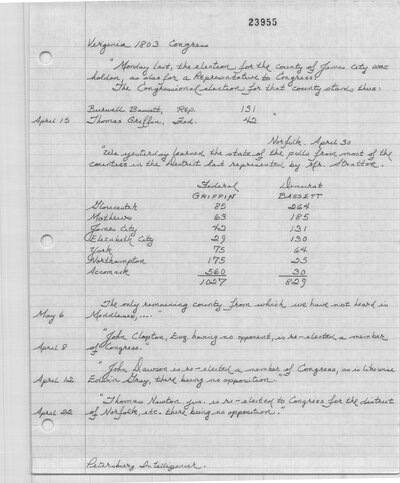 23955
Virginia 1803 Congress
"Monday last, the election for the county of James City was
holden, as also for a Representative to Congress.
The Congressional election for that county stands thus:
Burwell Bassett, Rep. 131
April 15 Thomas Griffin, Fed. 42 "
Norfolk, April 30
"We yesterday learned the state of the polls from most of the
counties in the District last represented by Mr. Stratton.
Federal Democrat
GRIFFIN BASSETT
Gloucester 85 264
Mathews 63 185
James City 42 131
Elizabeth City 29 130
York 75 64
Northampton 175 25
Accomack 560 30
1027 829
The only remaining county from which we have not heard is
May 6 Middlesex, ...."
"John Clopton, Esq. having no opponent, is re-elected a member
April 8 of Congress."
"John Dawson is re-elected a member of Congress, as is likewise
April 12 Edwin Gray, there being no opposition."
"Thomas Newton jun. is re-elected to Congress for the district
April 22 of Norfolk, etc. there being no opposition."
Petersburg Intelligencer.